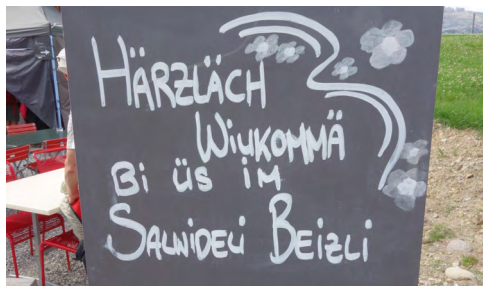 HÄRZLÄCH
WILLKOMMÄ
Bi üs iM
SALNIDELi BEiZLi